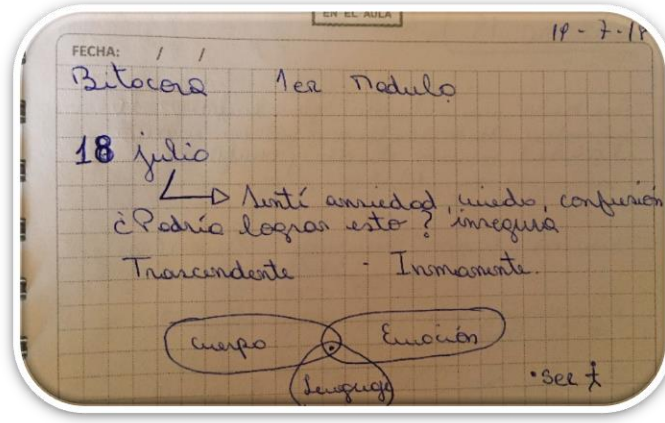 EN EL AULA
FECHA: / /
Bitacora 1er Modulo
18 julio
Sentí ansiedad, miedo, confusión
¿Podría lograr esto? insegura
Trascendente - Inmanente.
Cuerpo Emoción
Lenguaje
• See